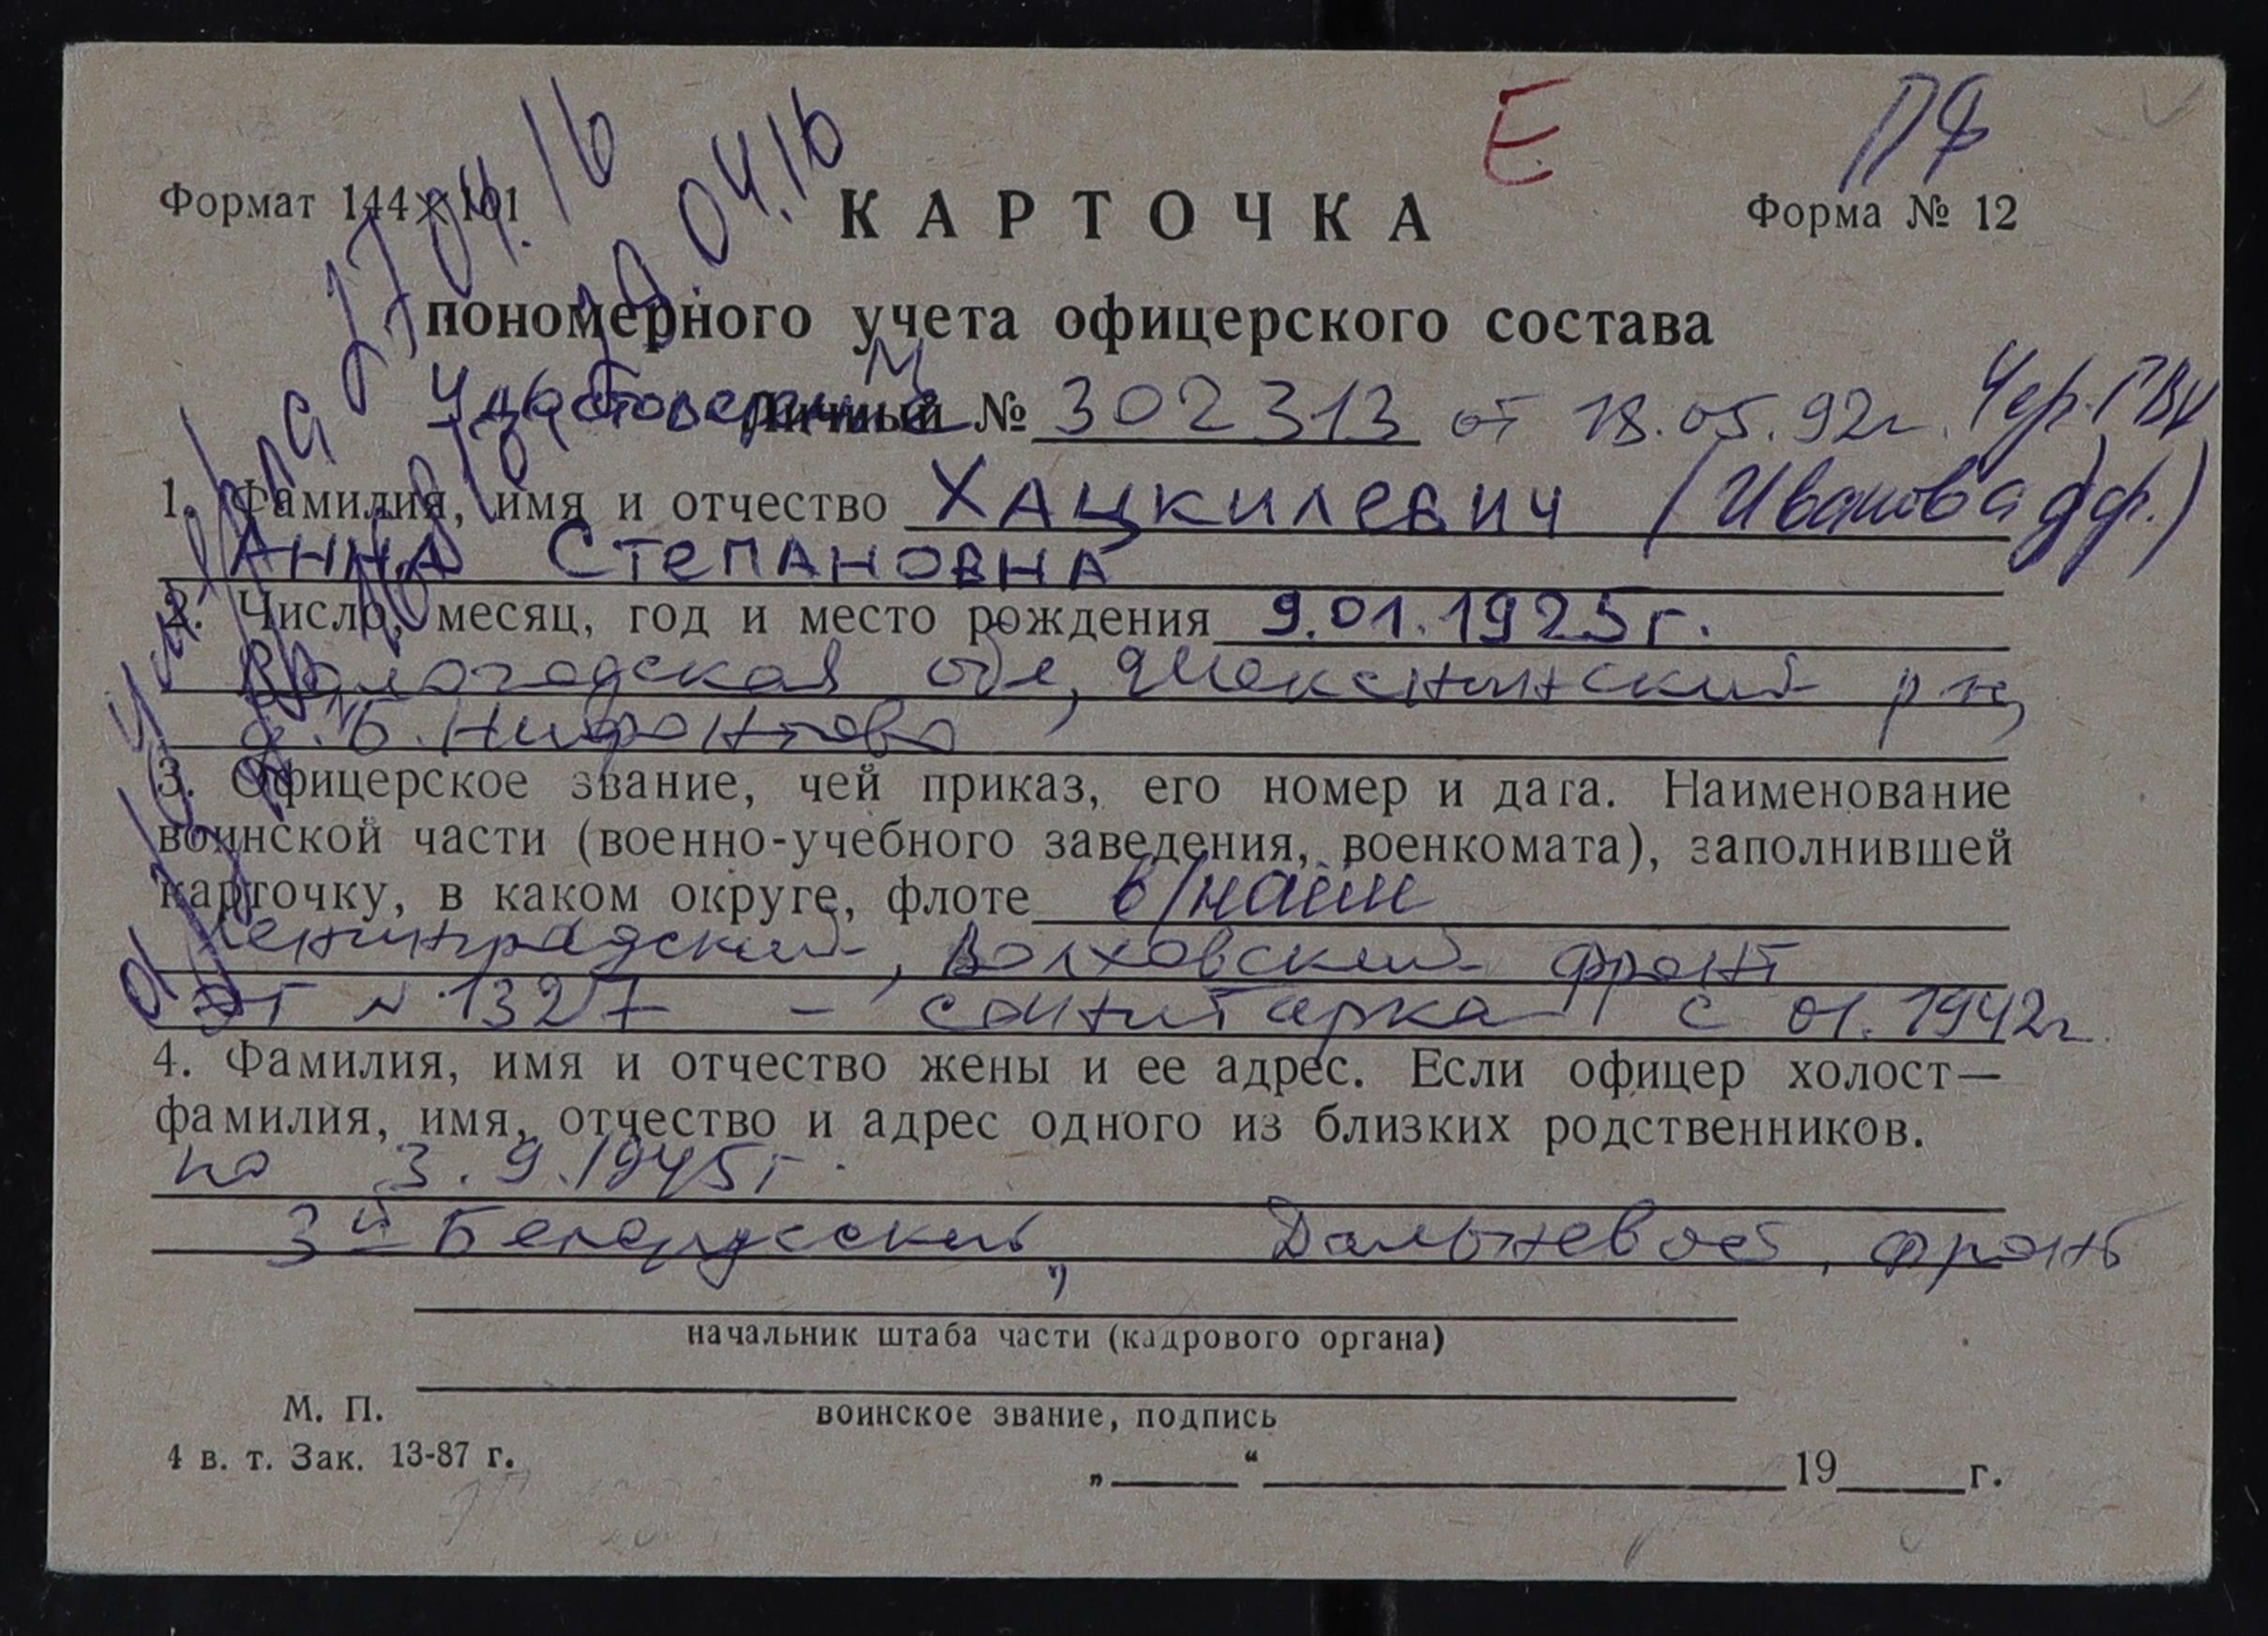 Е ПФ
Формат 144×101 КАРТОЧКА Форма № 12
пономерного учета офицерского состава
Удостоверение Личный № 302313 от 18.05.92г. Чер. ГВК
1. Фамилия, имя и отчество ХАЦКИЛЕВИЧ (Иванова д/ф.)
АННА СТЕПАНОВНА
2. Число, месяц, год и место рождения 9.01.1925г.
Вологодская обл, Шекснинский р-н,
д. Б. Нифонтово
3. Офицерское звание, чей приказ, его номер и дата. Наименование
воинской части (военно-учебного заведения, военкомата), заполнившей
карточку, в каком округе, флоте в/найм
Ленинградский, Волховский фронт
ЭГ № 1327 - санитарка с 01.1942г.
4. Фамилия, имя и отчество жены и ее адрес. Если офицер холост—
фамилия, имя, отчество и адрес одного из близких родственников.
по 3.9.1945г.
3й Белорусский, Дальневост, фронт
начальник штаба части (кадрового органа)
М. П.
воинское звание, подпись
4 в. т. Зак. 13-87 г.
„ “ 19 г.
17.04.16
19.04.16